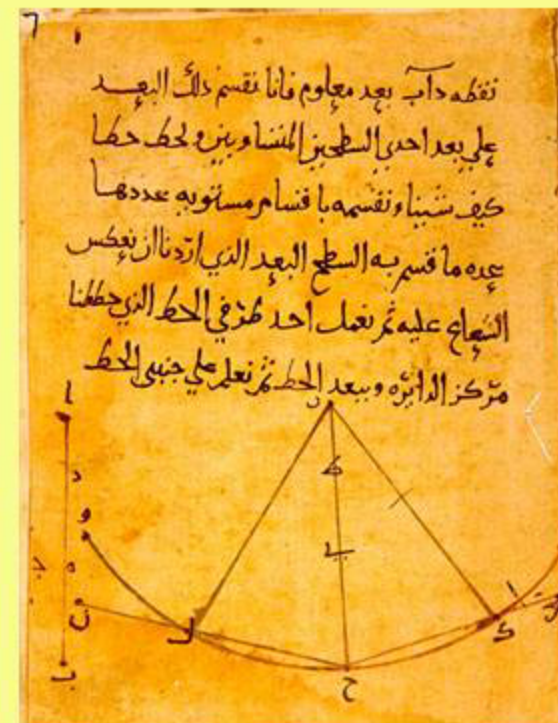 نقطه داب بعد معلوم فانا نقسم ذلك البعد
علي بعد احدي السطحين المتساويين ونخط خطا
كيف شينا ونقسمه باقسام مستويه عددها
عده ما قسم به السطح البعد الذي اردنا ان نعكس
الشعاع عليه ثم نعمل احد طرفي الخط الذي خططنا
مركز الدائره وببعد الخط ثم نعلم علي جنبي الخط
ا
د
و
ه
ب
ط
ح
ك